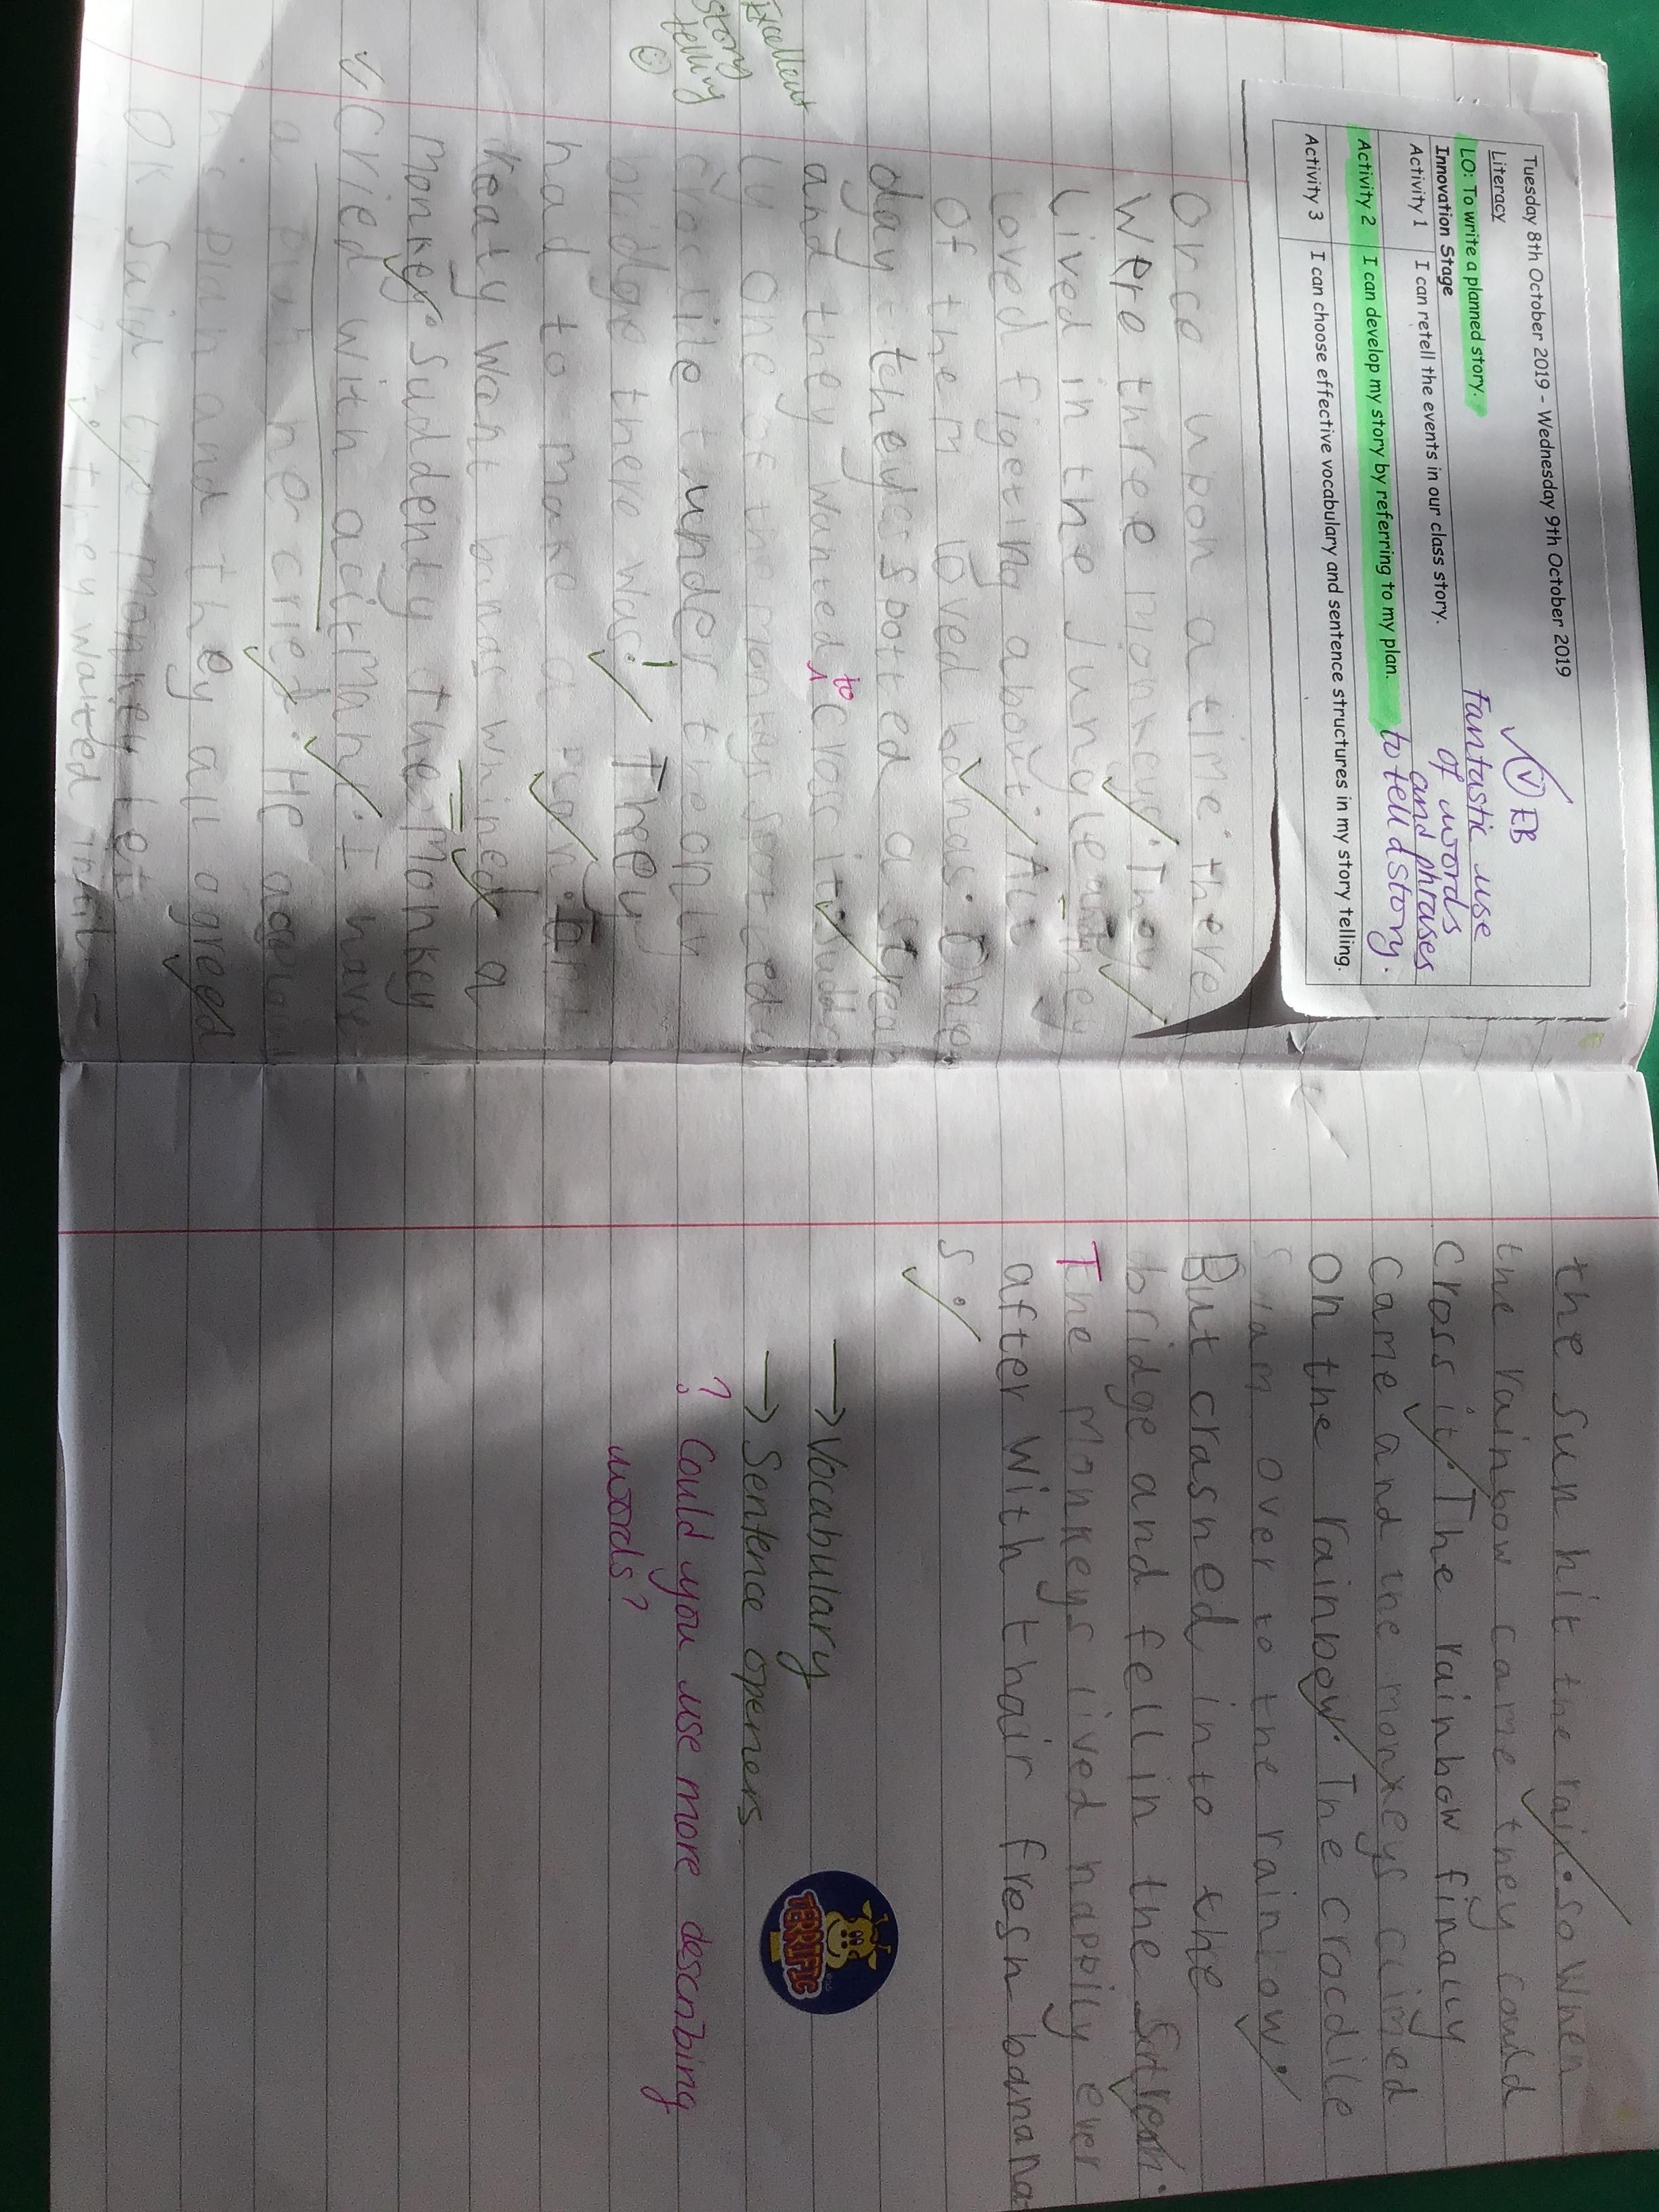 Tuesday 8th October 2019 – Wednesday 9th October 2019
Literacy
LO: To write a planned story.
Innovation Stage
Activity 1 I can retell the events in our class story.
Activity 2 I can develop my story by referring to my plan.
Activity 3 I can choose effective vocabulary and sentence structures in my story telling.
V EB
Fantastic use
of words
and phrases
to tell d story.
Once upon a time there
were three monkeys. They
lived in the Jungle they
loved figeting about. All
of them loved banas. One
day they spotted a stream
and they waned to cross it. sudde
ly one of the monkeys spotted
crocile under the only
bridge there was! They
had to make a plan.
Excellent
story
telling
realy want banas whined a
monkey. Suddenly the monkey
cried with acitmant. I have
a plan he cried. He
his plan and they all agreed
OK Suid the monkey let
they waited intil
the sun hit the rain. so when
the rainbow came they could
cross it. The rainbow finally
came and the monkeys climed
on the rainbow. The crocdile
swam over to the rainbow.
But crashed into the
bridge and fell in the stream.
The monkeys lived happily ever
after with thair fresh banana
s.
→ Vocabulary
→ Sentence openers
? Could you use more describing
words?
TERRIFIC